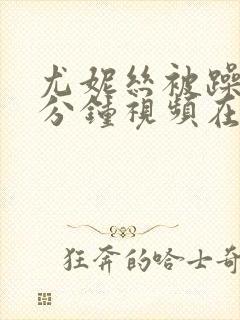 尤妮絲被躁
分鐘視頻在
狂奔的哈士奇